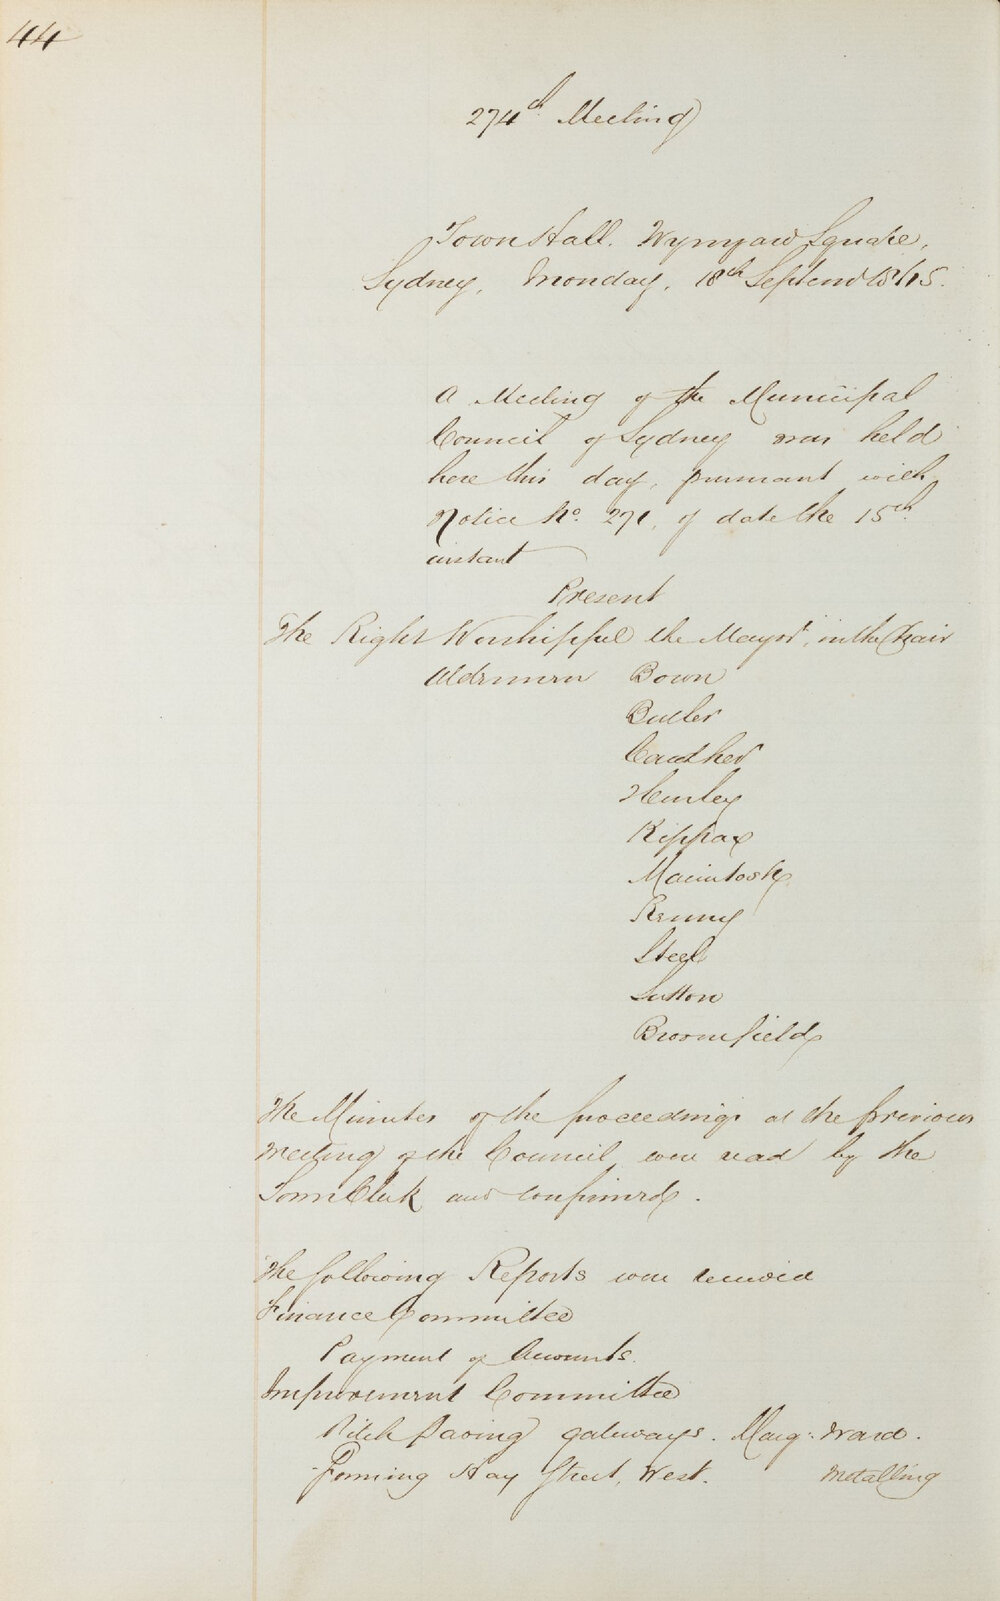 44
274th Meeting
Town Hall. Wynyard Square,
Sydney, Monday, 18th Septemr 1865.
A Meeting of the Municipal
Council of Sydney was held
here this day, pursuant with
Notice No. 271, of date the 15th
instant
Present
The Right Worshipful the Mayor, in the Chair
Aldermen Bown
Butler
Caraher
Hurley
Rippax
Macintosh
Renny
Steel
Sutton
Broomfield
The Minutes of the proceedings at the previous
meeting of the Council were read by the
Town Clerk and confirmed.
The following Reports were received
Finance Committee
Payment of Accounts.
Improvement Committee
Pitch paving gateways. Macq: Ward.
Forming Hay Street, West.
Metalling